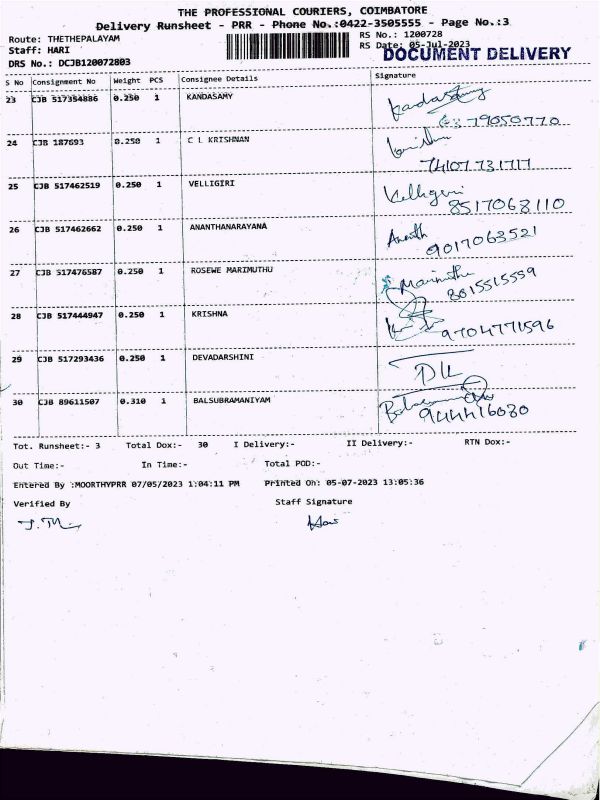 THE PROFESSIONAL COURIERS, COIMBATORE
Delivery Runsheet - PRR - Phone No.:0422-3505555 - Page No.:3
Route: THETHEPALAYAM RS No.: 1200728
Staff: HARI RS Date: 05-Jul-2023
DOCUMENT DELIVERY
DRS No.: DCJB120072803
S No Consignment No Weight PCS Consignee Details Signature
23 CJB 517354886 0.250 1 KANDASAMY Kandasamy
79050770
24 CJB 187693 0.250 1 C L KRISHNAN
74107 731717
25 CJB 517462519 0.250 1 VELLIGIRI Velligiri
8517068110
26 CJB 517462662 0.250 1 ANANTHANARAYANA Ananth
9017063521
27 CJB 517476587 0.250 1 ROSEWE MARIMUTHU Marimuthu
8815515559
28 CJB 517444947 0.250 1 KRISHNA
9704771596
29 CJB 517293436 0.250 1 DEVADARSHINI
30 CJB 89611507 0.310 1 BALSUBRAMANIYAM
Tot. Runsheet:- 3 Total Dox:- 30 I Delivery:- II Delivery:- RTN Dox:-
Out Time:- In Time:- Total POD:-
Entered By :MOORTHYPRR 07/05/2023 1:04:11 PM Printed On: 05-07-2023 13:05:36
Verified By Staff Signature